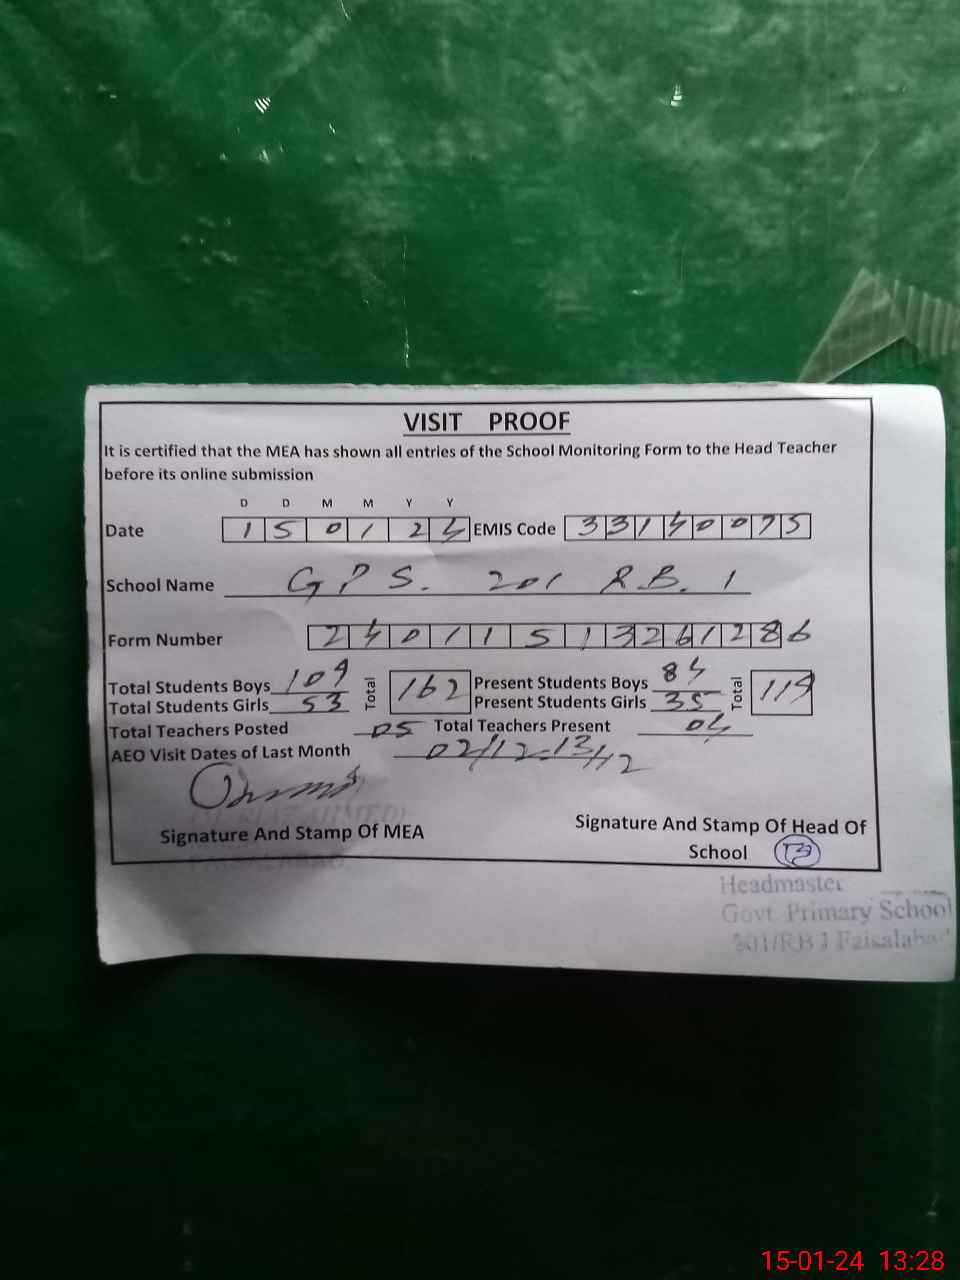 VISIT PROOF
It is certified that the MEA has shown all entries of the School Monitoring Form to the Head Teacher
before its online submission
D D M M Y Y
Date 1 5 0 1 2 4 EMIS Code 3 3 1 4 0 0 7 5
School Name G P S. 201 R.B. 1
Form Number 2 4 0 1 1 5 1 3 2 6 1 2 8 6
Total Students Boys 109 Total 162 Present Students Boys 84 Total 119
Total Students Girls 53 Present Students Girls 35
Total Teachers Posted 05 Total Teachers Present 04
AEO Visit Dates of Last Month 02/12-13/12
Signature And Stamp Of MEA
Signature And Stamp Of Head Of
School
FAISALABAD
Headmaster
Govt. Primary School
201/RB 1 Faisalabad
15-01-24 13:28